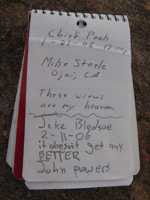 Chief Pooh
Mike Steele
Ojai, CA
These views
are my heaven
Jake Bledsoe
2-11-06
it doesn't get any
BETTER
John powers